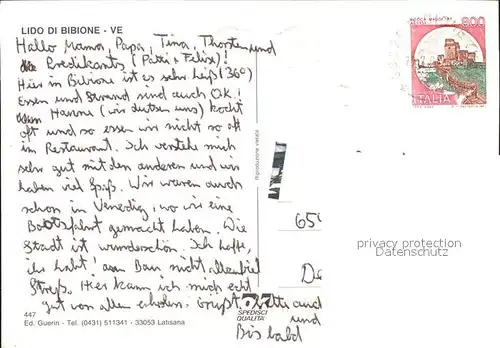 LIDO DI BIBIONE - VE
Hallo Mama, Papa, Tina, Thorsten und
die Bredikants (Patti + Felix)!
Hier in Bibione ist es sehr heiß (36°)
Essen und Strand sind auch O.K.!
Hanone (wir duzen uns) kocht
oft und so essen wir nicht so oft
im Restaurant. Ich verstehe mich
sehr gut mit den anderen und wir
haben viel Spaß. Wir waren auch
schon in Venedig, wo wir eine
Bootsfahrt gemacht haben. Die
Stadt ist wunderschön. Ich hoffe,
ihr habt! am Bau nicht allzuviel
Streß. Hier kann ich mich echt
gut von allem erholen. Grüßt auch
und
Bis bald
447
Ed. Guerin - Tel. (0431) 511341 - 33053 Latisana
Riproduzione vietata
OK
SPEDISCI
QUALITÀ
ROCCA MAGGIORE
ASSISI
800
ITALIA
654
De
privacy protection
Datenschutz